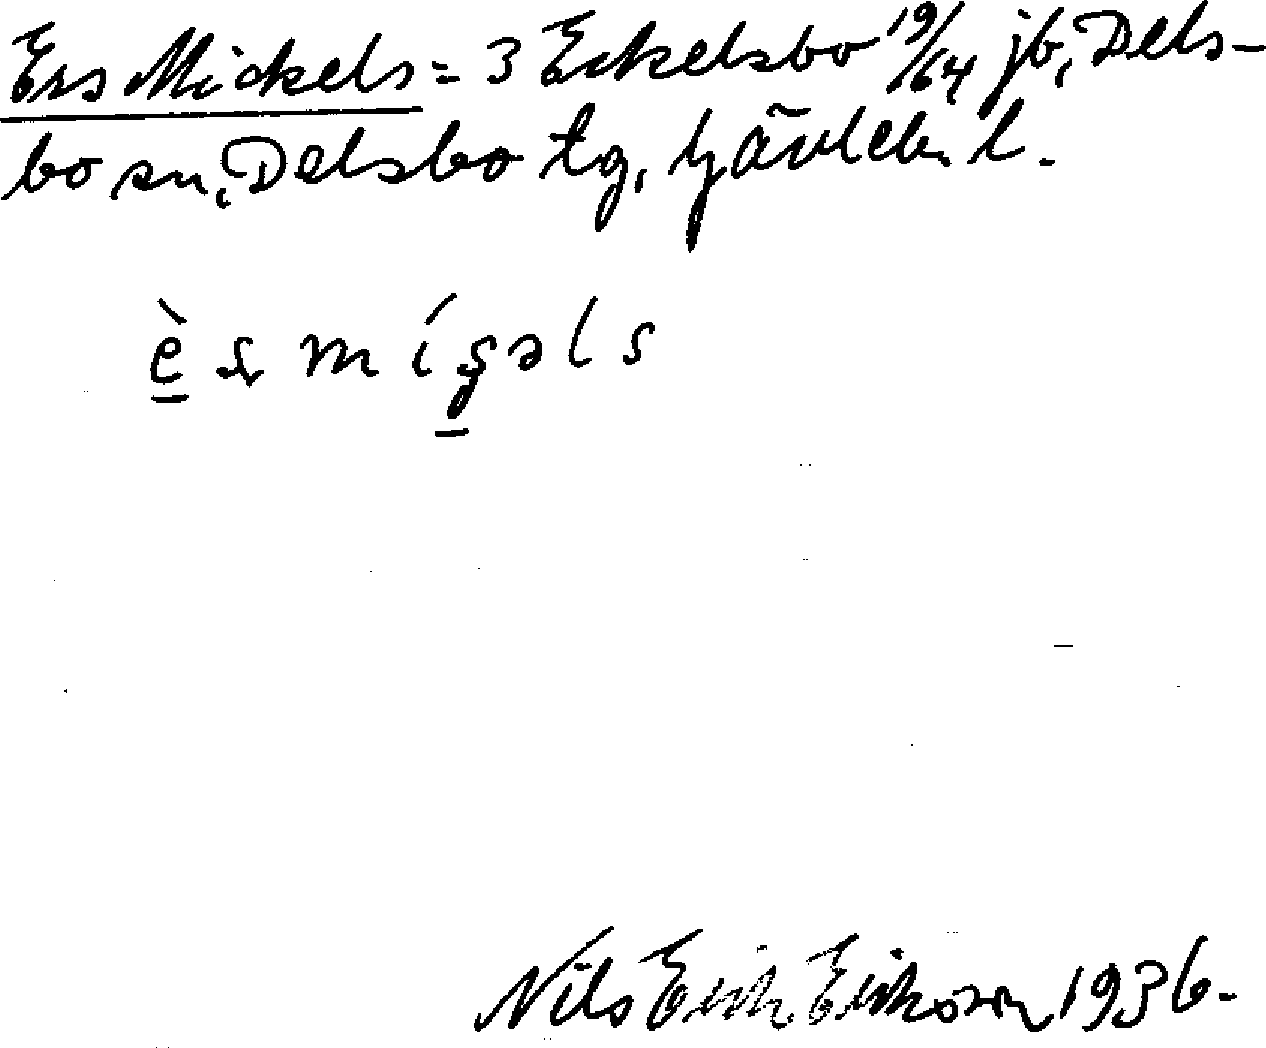 Ers Mickels = 3 Eckelsbo 19/64 jb, Dels-
bo sn, Delsbo tg, Gävleb. l.
Nils Erik Eriksson 1936.